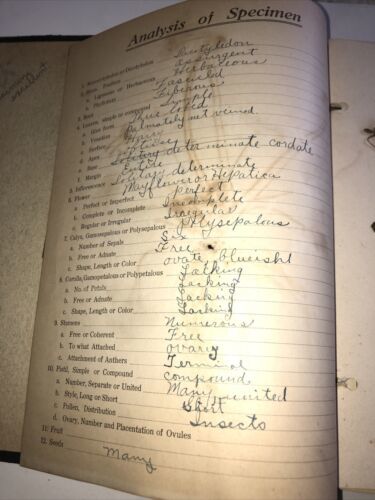 Analysis of Specimen
1. Monocotyledon or Dicotyledon Dicotyledon
2. Stem, Position assurgent
a. Ligneous or Herbaceous Herbaceous
3. Root Fasicled
Fiberous
4. Leaves, simple or compound Simple
a. Give Form Three lobed
b. Venation Palmately net veined
c. Surface Hairy
d. Apex
e. Base cordate
f. Margin Entire
5. Inflorescence Solitary determinate
6. Flower Mayflower or Hepatica
a. Perfect or Imperfect Perfect
b. Complete or Incomplete Incomplete
c. Regular or Irregular Iregular
7. Calyx, Gamosepalous or Polysepalous Polysepalous
a. Number of Sepals Six
b. Free or Adnate Free
c. Shape, Length or Color ovate, blueisht
8. Corolla, Gamopetalous or Polypetalous Lalking
a. No. of Petals Lacking
b. Free or Adnate Lacking
c. Shape, Length or Color Lacking
9. Stamens Numerous
a. Free or Coherent Free
b. To what Attached ovary
c. Attachment of Anthers Terminal
10. Pistil, Simple or Compound Compound
a. Number, Separate or United Many, united
b. Style, Long or Short Short
c. Pollen, Distribution Insects
d. Ovary, Number and Placentation of Ovules
11. Fruit
12. Seeds Many